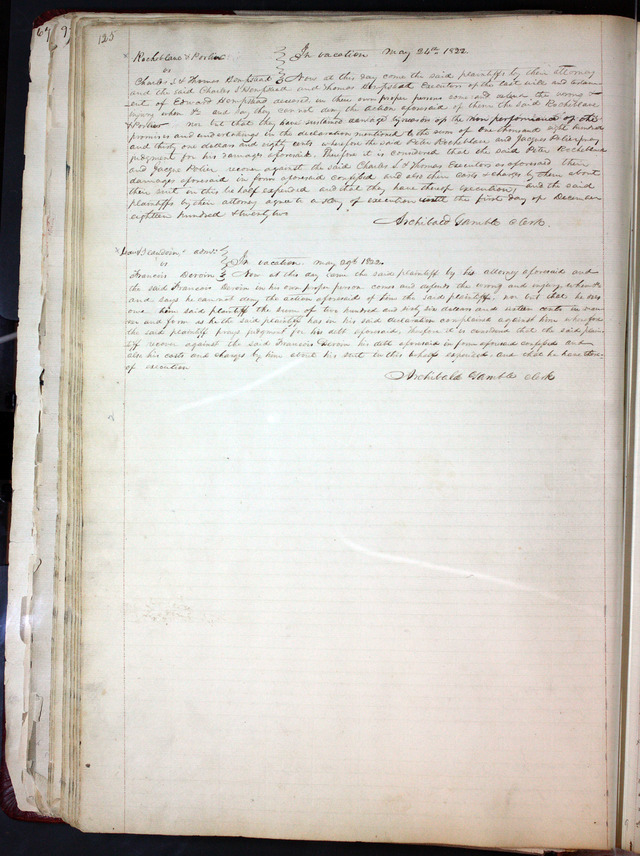 125
Rocheblave & Portier } In vacation May 24th 1822.
vs
Charles S. & Thomas Hempstead } Now at this day come the said plaintiffs by their attorney
and the said Charles S Hempstead and Thomas Hempstead Executors of the last will and testa-
ment of Edward Hempstead deceased in their own proper persons come and defend the wrong &
injury when &c and say they can not deny the action aforesaid of them the said Rocheblave
& Portier nor but that they have sustained damage by reason of the non performance of the
promises and undertakings in the declaration mentioned to the sum of one thousand eight hundred
and thirty one dollars and eighty cents wherefore the said Peter Rocheblave and Jacques Potier pray
judgment for his damages aforesaid. Therefore it is considered that the said Peter Rocheblave
and Jacque Potier recover against the said Charles S & Thomas Executors as aforesaid their
damages aforesaid in form aforesaid confessed and also their costs & charges by them about
their suit in this be half expended and that they have thereof execution, and the said
plaintiffs by their attorney agree to a stay of execution until the first day of December
eighteen hundred & twenty two
Archibald Gamble clerk.
admr }
vs } In vacation May 29th 1822.
Francis Deroin } Now at this day came the said plaintiff by his attorney aforesaid and
the said Francois Deroin in his own proper person comes and defends the wrong and injury, when &c
and says he can not deny the action aforesaid of him the said plaintiffs, nor but that he does
owe him said plaintiff the sum of two hundred and six dollars and sixteen cents in man-
ner and form as he the said plaintiff has in his said declaration complained against him wherefore
the said plaintiff prays judgment for his debt aforesaid, Therefore it is considered that the said plain-
tiff recover against the said Francis Deroin his debt aforesaid in form aforesaid confessed and
also his costs and charges by him about his suit in this behalf expended. and that he have there-
of execution
Archibald Gamble clerk